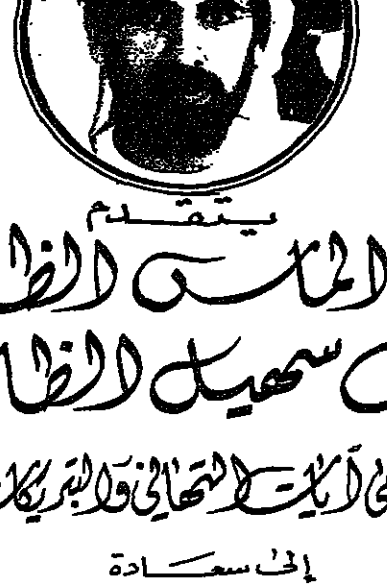 يتقدم
الماس الظا
سهيل الظا
آيات التهاني والتبريكات
إلى سعادة